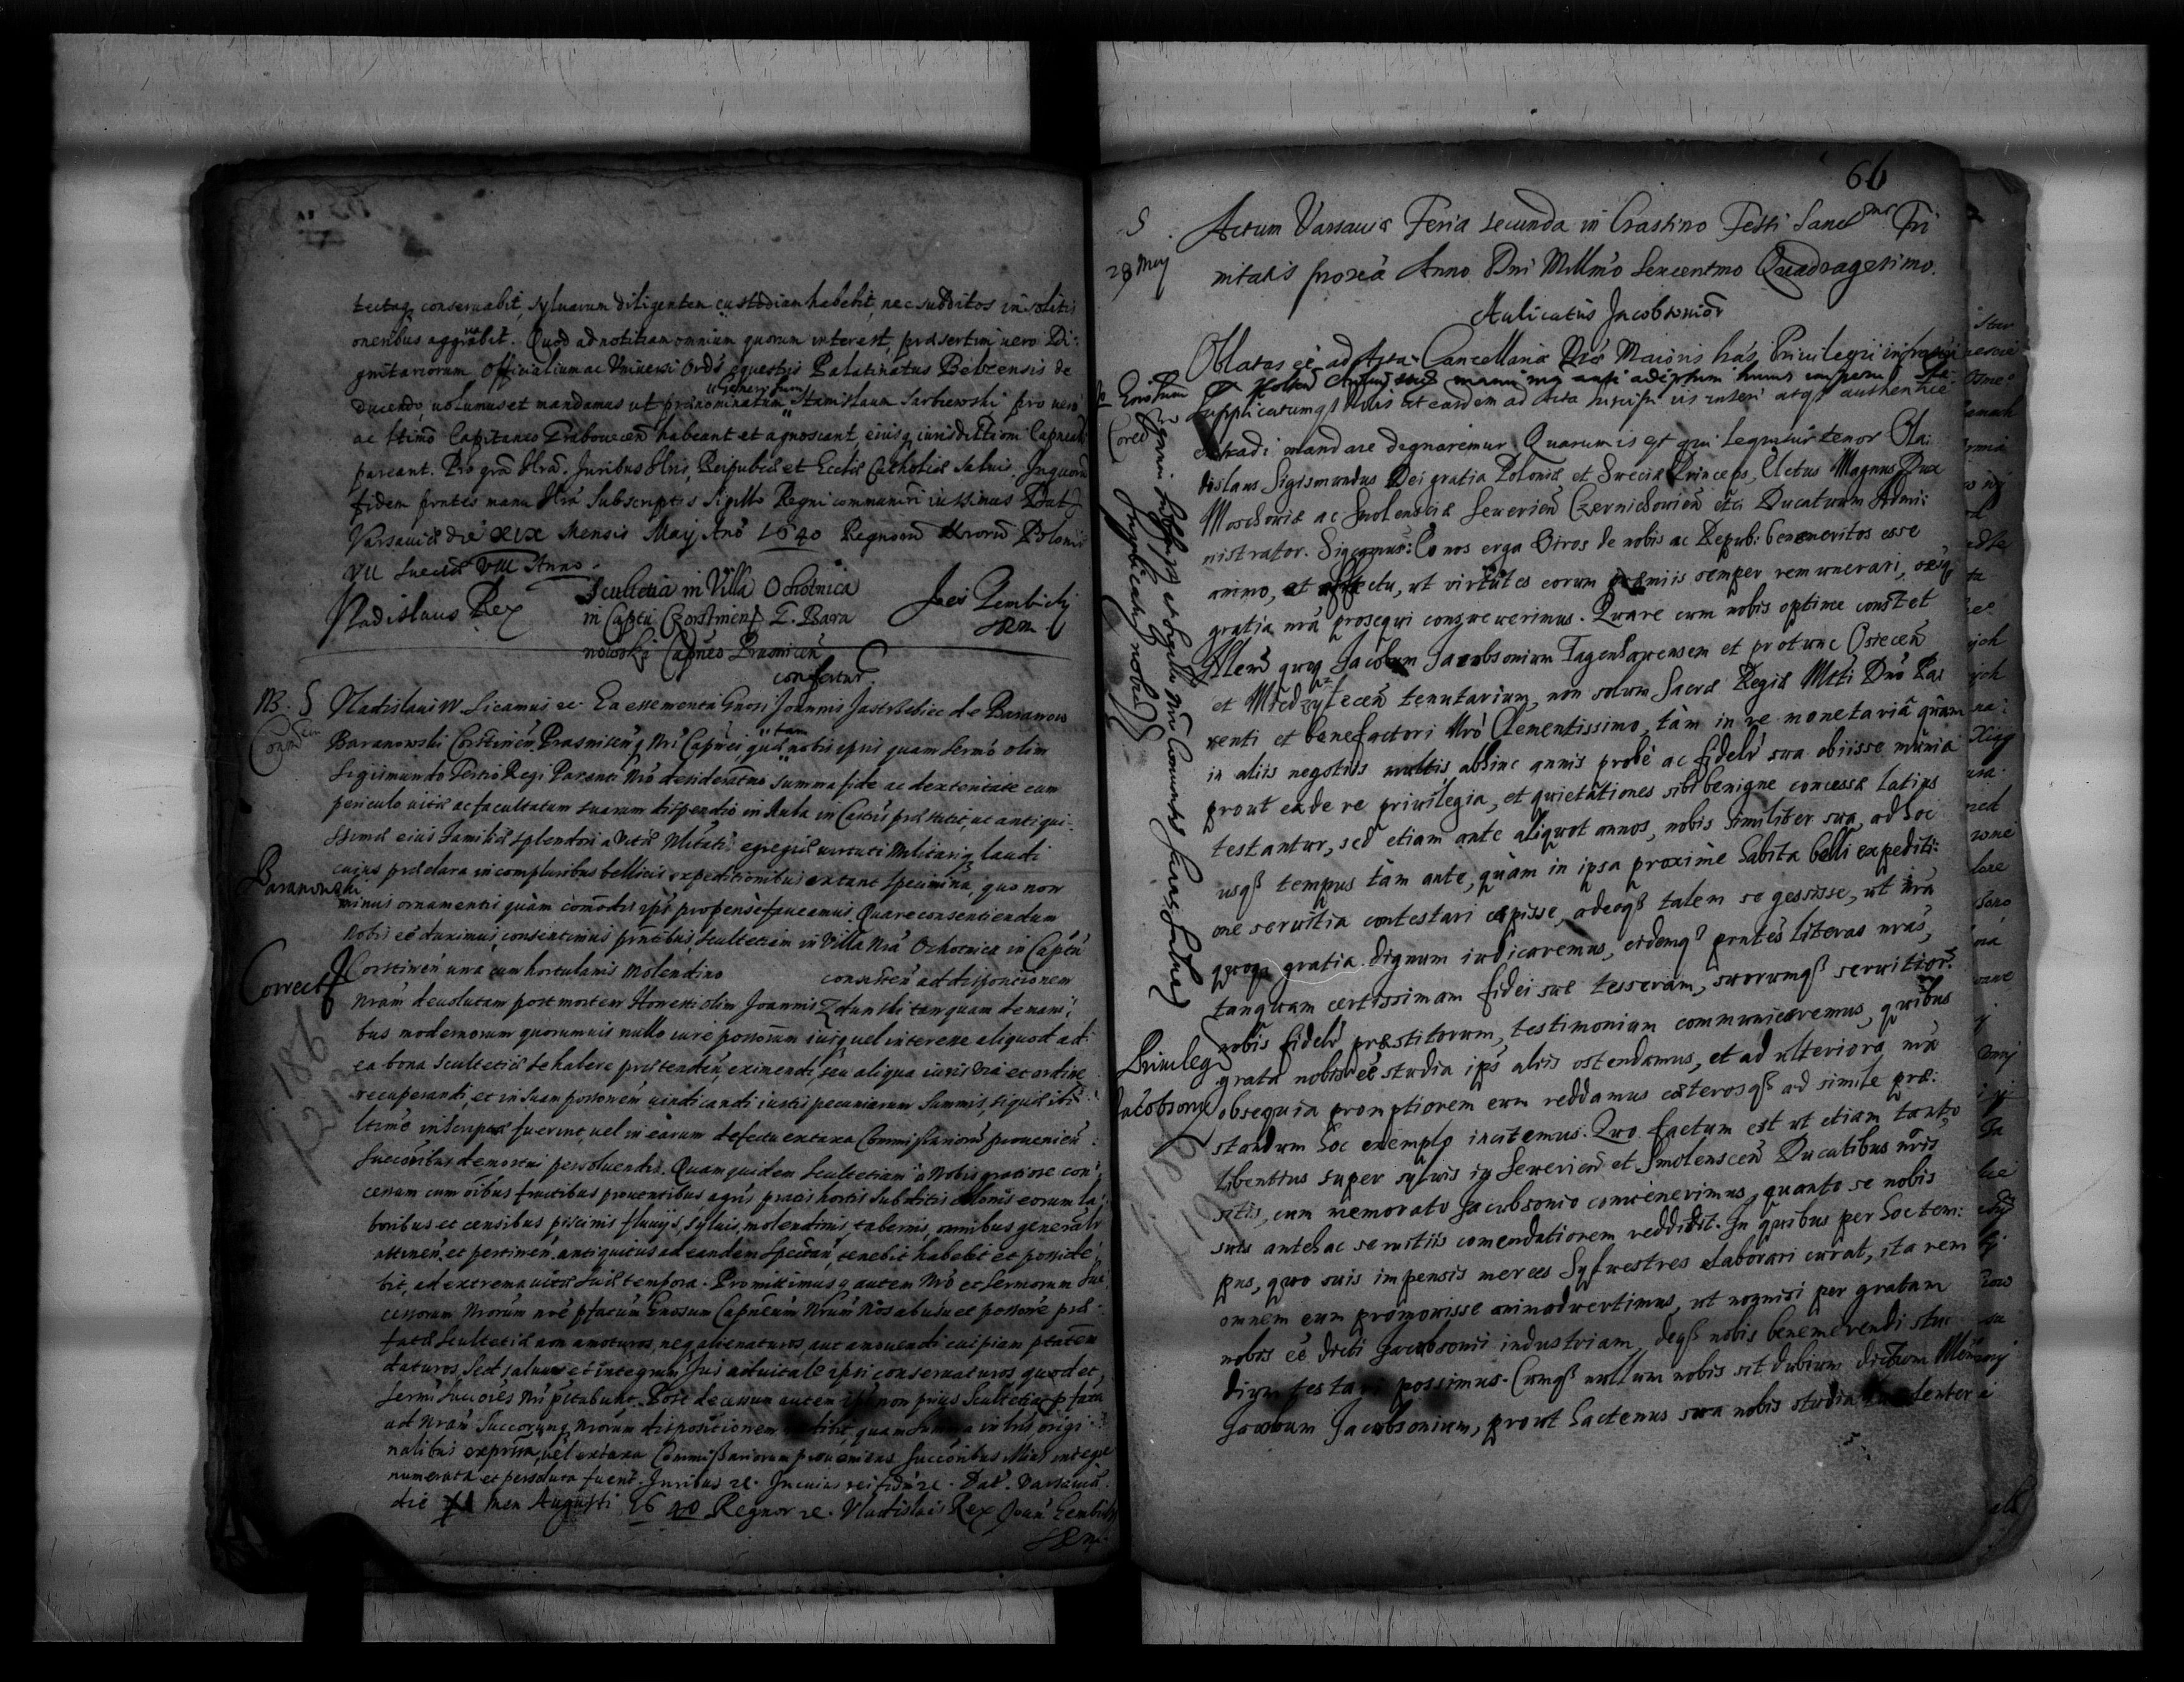 tectaq conseruabit, syluarum diligentem custodiam habebit, nec subditos insolitis
oneribus aggrabit. Quod ad notitiam omnium quorum interest, præsertim uero Di:
gnitariorum Officialium ac Uniuersi Ord's equestris Palatinatus Belzensis de
ducendo uolumus et mandamus ut prænominatum Generosum Stanislaum Sarbiewski pro uero
ac ltimo Capitaneo Grabouecen habeant et agnoscant, eiusq iurisdictioni
pareant. Pro gra Nra. Juribus Nris, Reipublicæ et Ecclæ Catholicæ saluis. In quorum
fidem pntes manu Nra Subscriptis Sigillo Regni communiri iussimus Dat
Varsauiæ die XIX Mensis Maij Ano 1640 Regnorum Nrorum Poloniæ
VII Sueciæ VIII Anno.
Vladislaus Rex
Scultetia in Villa Ochotnica
in Captu Czorstinen G. Bara
nowski Capneo Prasnicen
confertur.
NB. S
Vladislaus IV Sicamus &c. Ea esse merita Gnosi Joannis Jastrzebiec de Baranow
Baranowski Corstinen, Prasnisenq Nri Capnei quæ tam nobis ipsis quam Sermo olim
Sigismundo Tertio Regi Parenti Nro desideratmo summa fide ac dexteritate cum
periculo uitæ ac facultatum suarum dispendio in Aula in Castris præstitit, ac antiqui:
ssimæ eius Familiæ splendori egregiæ uirtuti Militariq laudi
cuius præclara in compluribus bellicis expeditionibus extant specimina, quo non
Baranowski
minus ornamentis quàm comodis ipsi propensè faueamus. Quare consentiendum
nobis eè duximus, consentimus pntibus, Scultetiam in Villa Nra Ochotnica in Captu
Corstinen una cum hortulanis Molendino consisten ad dispositionem
Correct
Nram deuolutam post mortem Honesti olim Joannis Zdunski tanquam de mani:
bus modernorum quorumuis nullo iure possorum iusq uel interesse aliquod ad
ea bona Scultetiæ se habere prætenden, eximendi, seu aliqua iuris uia et ordine
recuperandi, et in suam possonem uindicandi iustis pecuniarum Summis, siquæ ibi
ltime inscriptæ fuerint, uel in earum defectu ex taxa Commissariorum prouenien
Succoribus demortui persoluendis. Quam quidem Scultetiam à Nobis gratiose con:
cessam cum oibus fructibus prouentibus agris pratis hortis subditis colonis eorum la:
boribus et censibus piscinis fluuijs, syluis, molendinis, tabernis, omnibus generalr
attinen et pertinen. antiquitus ad eandem spectan, tenebit habebit et posside:
bit, ad extrema uitæ suæ tempora. Promittimusq autem Nro et Sermorum Suc
cessorum Nrorum nre pfatum Gnosum Capneum Nrum Nos ab usu et possone præ:
fatæ Scultetiæ non amoturos, neq alienaturos, aut amouendi cuipiam ptatem
daturos, Sed saluum et integrum Jus aduitale ipsi conseruaturos quod et
Sermi Succores Nri pstabunt. Post decessum autem ipsi non prius Scultetia pfata
ad Nram Succorumq Nrorum dispositionem quam Summa in lris origi
nalibus expressa, uel ex taxa Commissariorum proueniens Succoribus illius integre
numerata et persoluta fuerit. Juribus &c. In cuius rei fidem &c. Dat. Varsauiæ.
die men Augusti 1640 Regnor &c. Vladislaus Rex Joan Gembicki
66
S.
28 Maij
Actum Varsauiæ Feria secunda in Crastino Festi Sanctmæ Tri
nitatis proxa Anno Dni Millmo Sexcentmo Quadragesimo.
Aulicatus Jacobsonior
Oblatas eè ad Acta Cancellariæ Nræ Maioris has Priuilegii infrascri
supplicatumq Nobis ut easdem ad Acta suscipi iis inseri atq authentice
extradi mandare dignaremur Quarum is est qui sequitur tenor Vla:
dislaus Sigismundus Dei gratia Poloniæ et Sueciæ Princeps, Electus Magnus Dux
Moschouiæ ac Smolensciæ Seuerien Czernichouien etc Ducatuum Admi:
nistrator. Significamus: Eo nos erga Viros de nobis ac Repub: benemeritos esse
animo, et affectu, ut virtutes eorum præmiis semper remunerari, oesq
gratia nra prosequi consueuerimus. Quare cum nobis optime constet
Jacobum Jacobsonium Tagenhawensem et pro tunc Ossecen
et Miedzylecen tenutarium, non solum Sacræ Regiæ Mtti Dno Pa:
renti et benefactori Nro Clementissimo, tàm in re monetariâ quàm
in aliis negotiis multis abhinc annis probè ac fidelr sua obiisse munia
prout ea de re priuilegia, et quietationes sibi benigne concessæ latius
testantur, sed etiam ante aliquot annos, nobis similiter sua, ad hoc
usq tempus tàm ante, quàm in ipsa proximè habita belli expediti:
one seruitia contestari cæpisse, adeoq talem se gessisse, ut nra
quoq gratia dignum iudicaremus, eidemq pntes literas nras,
tanquam certissimam fidei suæ tesseram, suorumq seruitior
nobis fidelr præstitorum, testimonium communicaremus, quibus
Priuileg
Jacobsony
grata nobis eè studia ipsi aliis ostendamus, et ad ulteriora nra
obsequia promptiorem eum reddamus cæterosq ad simile præ:
standum hoc exemplo incitemus. Quo factum est ut etiam tanto
libentius super syluis in Seuerien et Smolenscen Ducatibus nris
sitis, cum memorato Jacobsonio conuenerimus, quanto se nobis
suis antehac seruitiis comendatiorem reddidit. In quibus per hoc tem:
pus, quo suis impensis merces Sylvestres elaborari curat, ita rem
omnem eum promouisse animaduertimus, ut nonnisi per gratam
nobis eè dicti Jacobsonii industriam, deq nobis benemerendi stu:
dium testari possimus. Cumq nullum nobis sit dubium dictum
Jacobum Jacobsonium, prout hactenus sua nobis studia